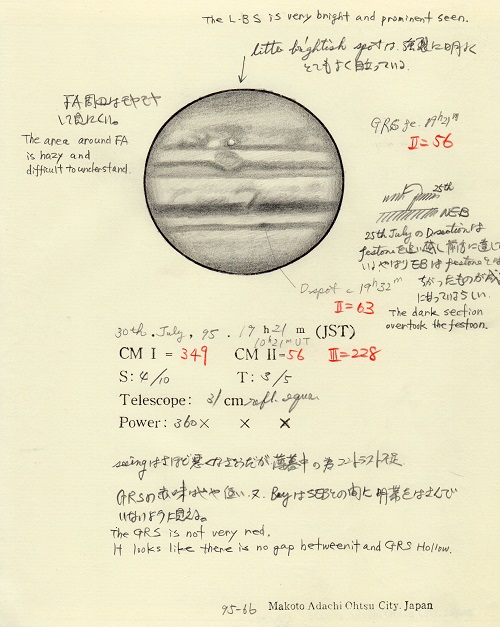 The L-BS is very bright and prominent seen.
little brightish spot は、強烈に明るく
とてもよく目立っている。
FA周辺はモヤモヤ
して見にくい。
The area around FA
is hazy and
difficult to understand.
GRS 19h21m
II=56
25th
NEB
25th July の D section は
festoon を追い越し前方に
The dark section
overtook the festoon.
D spot 19h32m
II=63
30th. July, 95. 19h21m (JST)
10h21m UT
CM I = 349 CM II=56 III=228
S: 4/10 T: 3/5
Telescope: 31 cm refl. equa.
Power: 360× × ×
seeing はさほど悪くなさそうだが、薄暮中の為コントラスト不足
GRSの赤味はやや低い。又、BayはSEBとの間に明帯をはさんで
いないように見える。
The GRS is not very red.
It looks like there is no gap between it and GRS Hollow.
95-66 Makoto Adachi Ohtsu City. Japan